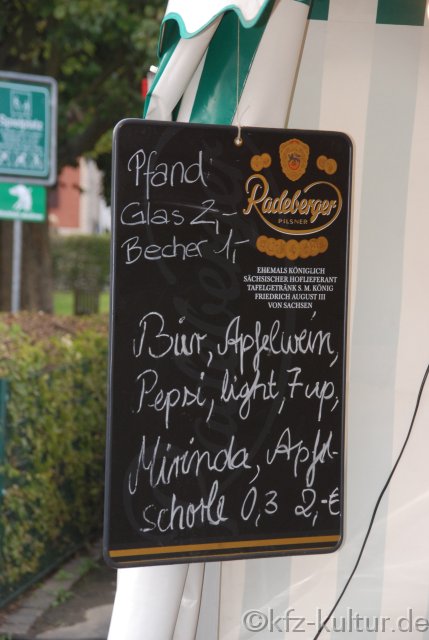 Pfand
Glas 2,-
Becher 1,-
Radeberger
PILSNER
EHEMALS KÖNIGLICH
SÄCHSISCHER HOFLIEFERANT
TAFELGETRÄNK S. M. KÖNIG
FRIEDRICH AUGUST III
VON SACHSEN
Bier, Apfelwein,
Pepsi, light, 7up,
Mirinda, Apfel-
schorle 0,3 2,-€
Spielplatz
©kfz-kultur.de